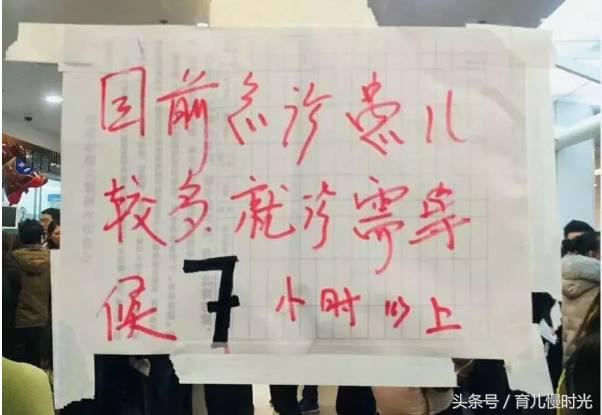 目前急诊患儿
较多就诊需等
候7小时以上
头条号／育儿慢时光